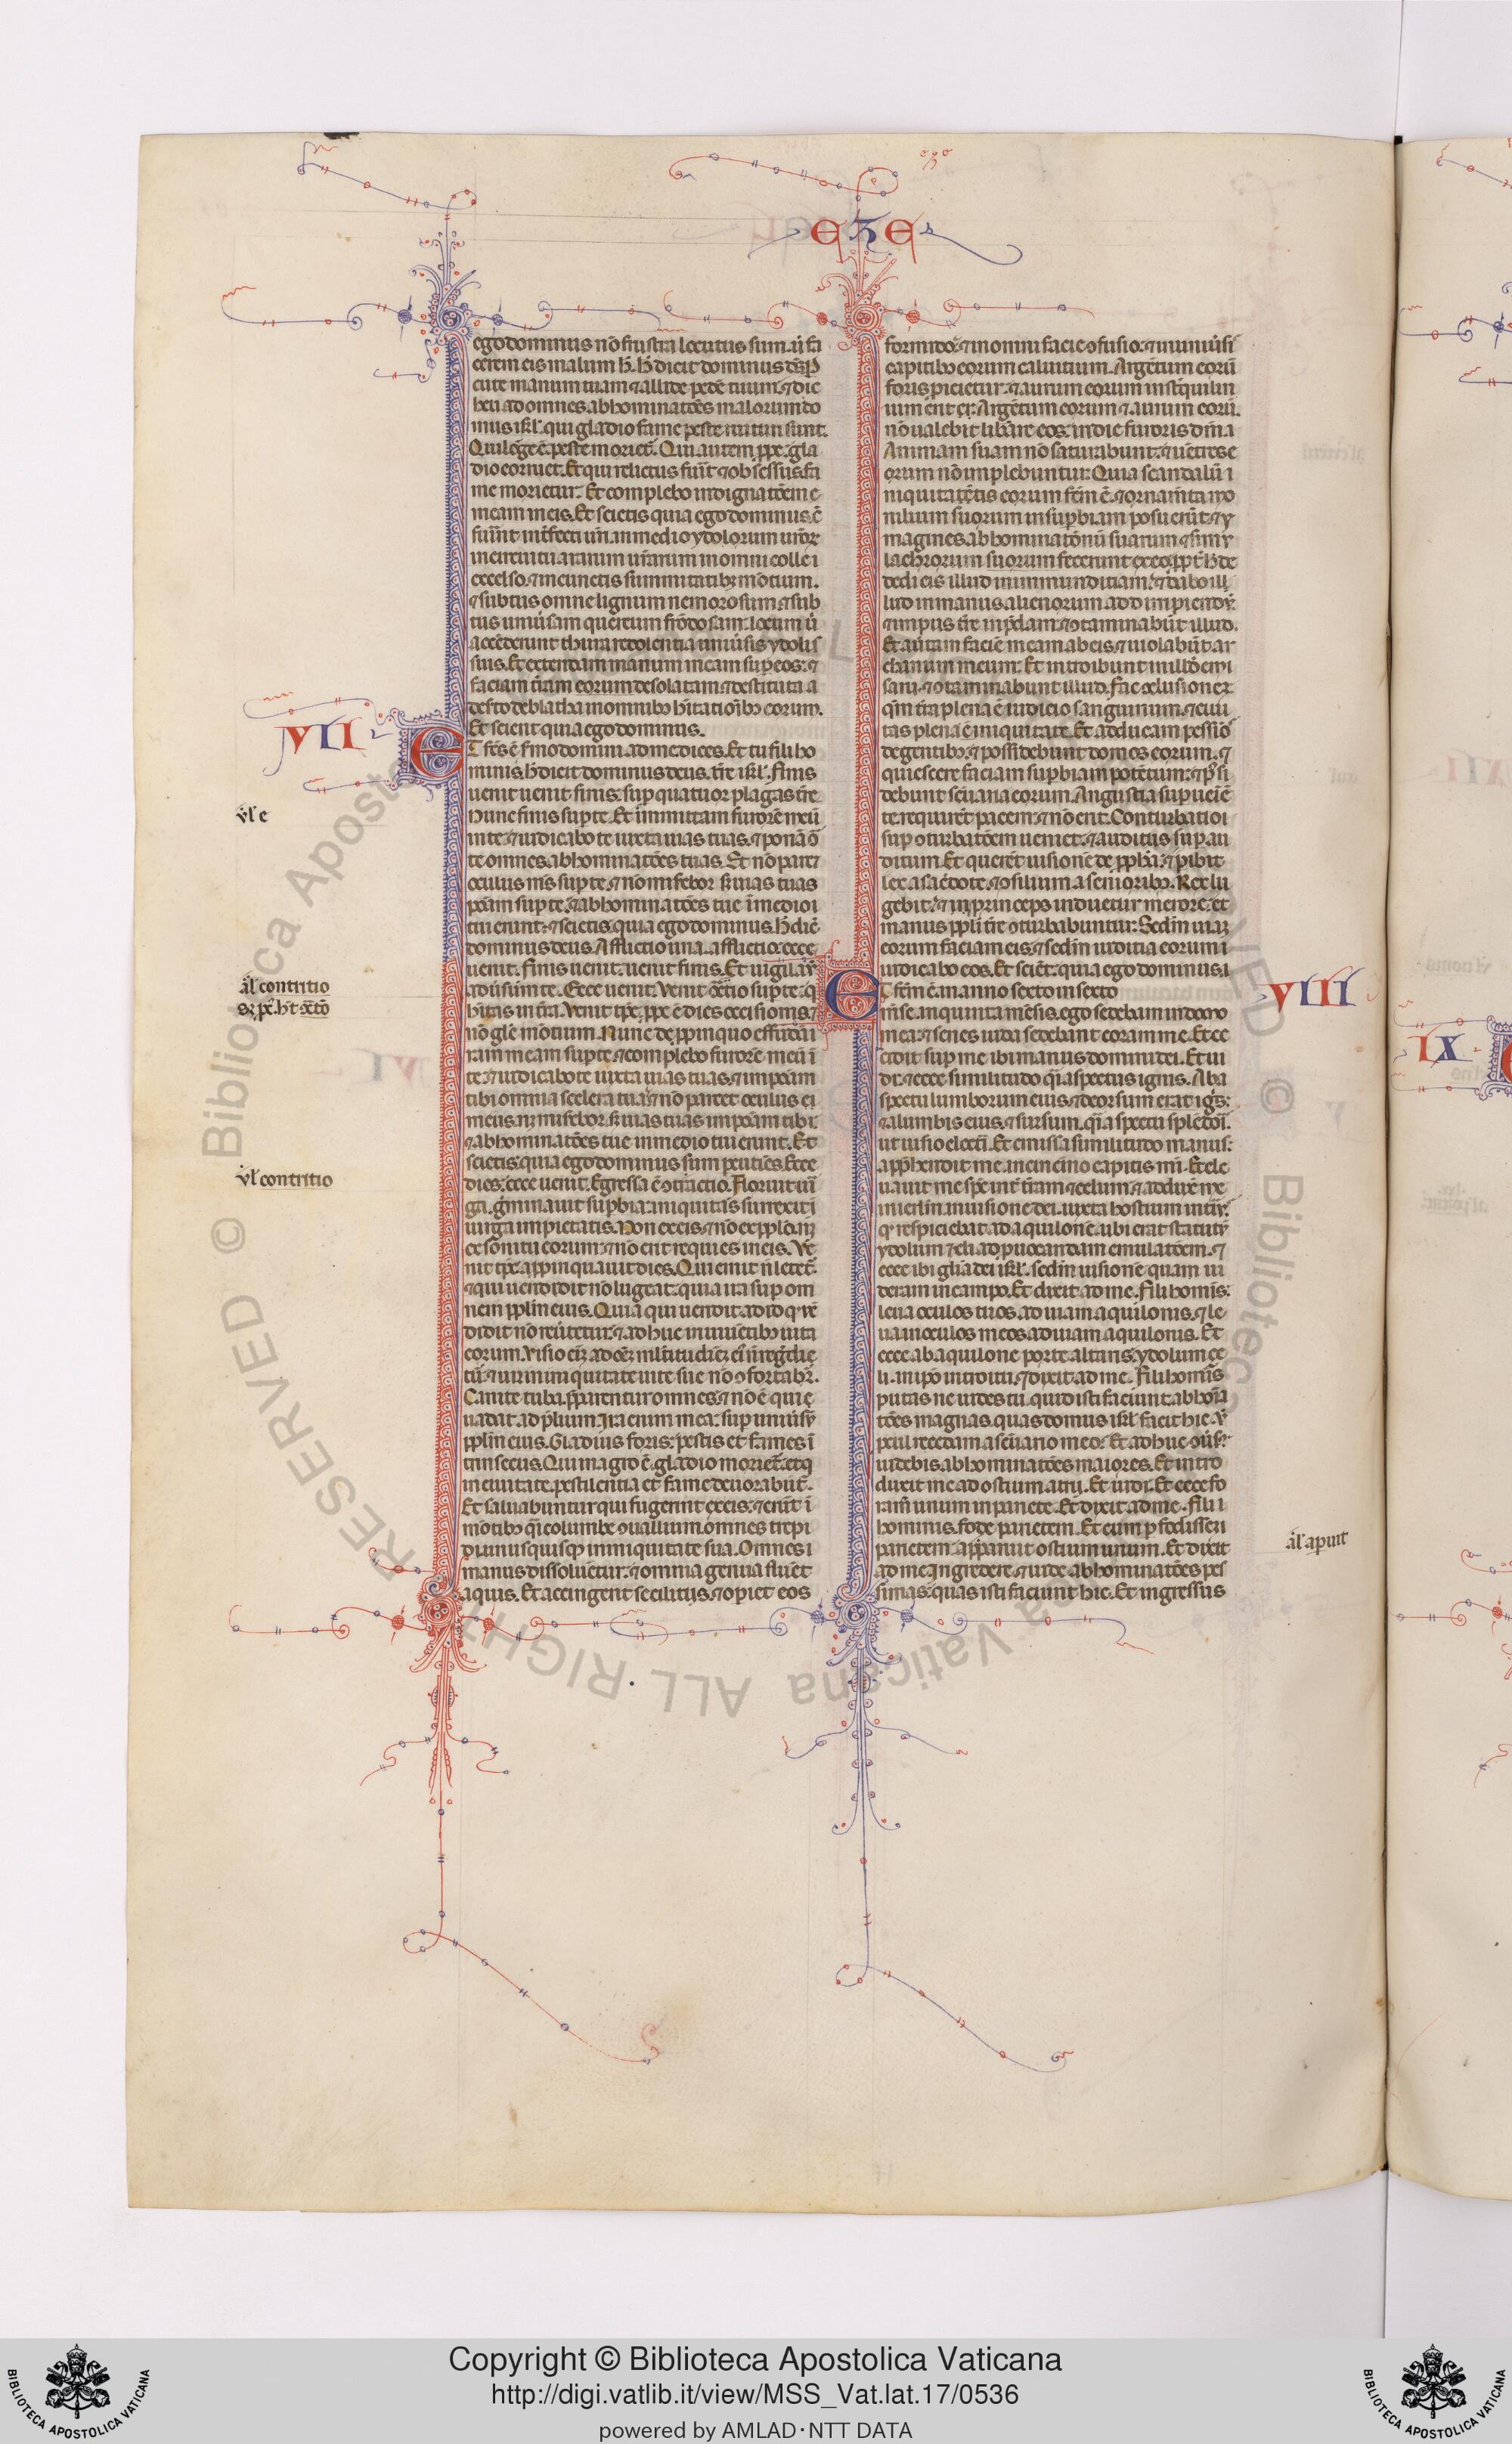 eze
ego dominus nō frustra locutus sum. ut̉ fa
cerem eis malum h̄. h̄ dicit dominus dš. P̱
cute manum tuam ⁊ allide pedē tuum. ⁊ dic
heu ad omnes abhominatōes malorum do
mus isrl̓. qui gladio fame peste ruituri sunt.
Qui lōge ē. peste moriet̉. Qui autem ꝓpe. gla
dio corruet. Et qui relictus fuīt ⁊ obsessus. fa
me morietur. Et complebo indignatōem
meam in eis. Et scietis quia ego dominus. c̄
fuīnt int̉fecti uri. in medio ydolorum uroꝝ
in circuitu ararum urarum in omni colle
excelso. ⁊ in cunctis summitatibꝫ mōtium.
⁊ subtus omne lignum nemorosum ⁊ sub
tus uniu̓sam quercum frōdosam. locum u̓
accēderunt thura redolentia uniu̓sis ydolis
suis. Et extendam manum meam suꝑ eos. ⁊
faciam t̄ram eorum desolatam ⁊ destitutā a
deserto deblatha in omnibꝫ hītatiōibꝫ eorum.
Et scient quia ego dominus.
VII
ET fc̄s ē sermo domini ad me dicēs. Et tu fili ho
minis. h̄ dicit dominus deus. t̄re isrl̓. Finis
uenit uenit finis. suꝑ quatuor plagas t̄re.
Nunc finis suꝑ te. Et immittam furorē meū
in te. ⁊ iudicabo te iuxta uias tuas. ⁊ ponā ō
te omnes abhominatōes tuas. Et nō parcet
oculus ms̄ suꝑ te. ⁊ nō miserebor. s̄ uias tuas
ponam suꝑ te. ⁊ abhominatōes tue ī medio
tui erunt. ⁊ scietis. quia ego dominus. H̄ dic̄
dominus deus. Afflictio una. afflictio. ecce
uenit. finis uenit. uenit finis. Et uigilauit
adu̓sum te. Ecce uenit. Venit ꝯtritio suꝑ te. q̄
hītas in t̄ra. Venit tꝑs. ꝓpe ē dies occisionis. ⁊
nō gl̄e mōtium. Nunc de ꝓpinquo effundā
iram meam suꝑ te. ⁊ complebo furorē meū ī
te. ⁊ iudicabo te iuxta uias tuas. ⁊ imponam
tibi omnia scelera tua. ⁊ nō parcet oculus
meus. nec miserebor. s̄ uias tuas imponam tibi
⁊ abhominatōes tue in medio tui erunt. Et
scietis. quia ego dominus sum percutiēs. Ecce
dies. ecce uenit. Egressa ē ꝯtractio. Floruit uī
ga. germinauit suꝑbia. iniquitas surrexit ī
uirga impietatis. Non ex eis. ⁊ nō ex ppl̄o. neqꝫ
ex sonitu eorum. ⁊ nō erit requies in eis. Ve
nit tꝑs. appinquauit dies. Qui emit nō letet̉.
⁊ qui uendidit nō lugeat. quia ira suꝑ om
nem ppl̄m eius. Quia qui uendit. ad id qd̓ uē
didit nō reu̓tetur. ⁊ adhuc in uiuētibꝫ uita
eorum. Visio eī ad oēm multitudinē eius nō regredie
tur. ⁊ uir in iniquitate uite sue nō ꝯfortabit̉.
Canite tuba. ꝑparentur omnes. ⁊ nō ē qui
uadat ad ꝓelium. Ira enim mea. suꝑ uniu̓sum
ppl̄m eius. Gladius foris. pestis et fames ī
trinsecus. Qui in agro ē. gladio moriet̉. et q̄
in ciuitate. pestilentia et fame deuorabunt̉.
Et saluabuntur qui fugerint ex eis. ⁊ erūt ī
mōtibꝫ quasi columbe ꝯuallium. omnes trepi
di. unusquisqꝫ in iniquitate sua. Omnes
manus dissoluētur. ⁊ omnia genua fluēt
aquis. Et accingent se ciliciis. ⁊ opiet eos
vl̓ c
al̓ contritio
vl̓ contritio
formido. ⁊ in omni facie ꝯfusio. ⁊ in uniu̓sis
capitibꝫ eorum caluitium. Argētum eorū
foris picietur. ⁊ aurum eorum in sterquilini
ium erit. Argētum eorum ⁊ aurum eorū.
nō ualebit libare eos. in die furoris dn̄i.
Animam suam nō saturabunt. ⁊ uētres e
orum nō implebuntur. Quia scandalū i
niquitatis eorum fc̄m ē. ⁊ ornam̄ta mo
nilium suorum in suꝑbiam posuerūt. ⁊ y
magines abhominatōnū suarum ⁊ simu
lachrorum suorum fecerunt ex eo. ꝓpt̉ h̄ de
dedi eis illud in immunditiam. ⁊ dabo il
lud in manus alienorum ad diripiendū.
⁊ impiis t̄re in p̄dam. ⁊ ꝯtaminabūt illud.
Et au̓tam faciē meam ab eis. ⁊ uiolabūt ar
chanum meum. Et introibunt in illud emi
sarii. ⁊ ꝯtaminabunt illud. Fac ꝯclusionē.
qm̄ t̄ra plena ē iudicio sanguinum. ⁊ ciui
tas plena ē iniquitate. Et adducam pessimos
de gentibꝫ. ⁊ possidebunt domos eorum. ⁊
quiescere faciam suꝑbiam potētum. ⁊ possi
debunt sc̄uaria eorum. Angustia suꝑueniē
te. requirēt pacem. ⁊ nō erit. Conturbatio
suꝑ ꝯturbatōem ueniet. ⁊ auditus suꝑ au
ditum. Et querēt uisionē de ꝓpheta. ⁊ ꝑibit
lex a sac̄dote. ⁊ ꝯsilium a senioribꝫ. Rex lu
gebit. ⁊ princeps induetur merore. et
manus ppl̄i t̄re ꝯturbabuntur. Sedm̄ uiaꝫ
eorum faciam eis. ⁊ sedm̄ iuditia eorum
iudicabo eos. Et sciēt. quia ego dominus.
VIII
ET fc̄m ē. in anno sexto in sexto
mēse. in quinta mēsis. ego sedebam in domo
mea. ⁊ senes iuda sedebant coram me. Et ce
cidit suꝑ me ibi manus domini dei. Et ui
di. ⁊ ecce similitudo quasi aspectus ignis. Ab a
spectu lumborum eius. ⁊ deorsum erat ignis.
⁊ a lumbis eius. ⁊ sursum. quasi aspectu splēdor.
ut uisio electri. Et emissa similitudo manus.
appͬhendit me. in cincino capitis mei. Et ele
uauit me spc̄ int̉ t̄ram ⁊ celum. ⁊ adduxit me
in ierl̄m. in uisione dei. iuxta hostium int̉ius.
qd̓ respiciebat ad aquilonē. ubi erat statutū
ydolum zeli ad ꝓuocandam emulatōem. ⁊
ecce ibi gl̄ia dei isrl̓. sedm̄ uisionē quam ui
deram in campo. Et dixit ad me. Fili homīs.
leua oculos tuos. ad uiam aquilonis. ⁊ le
uaui oculos meos ad uiam aquilonis. Et
ecce ab aquilone porte altaris. ydolum ze
li. in ipo introitu. ⁊ dixit ad me. Fili homīs
putas ne uides tu. quid isti faciunt. abhoīa
tōes magnas. quas domus isrl̓ facit hic. ut
pcul recedam a sc̄uario meo. Et adhuc ꝯu̓sus.
uidebis abhominatōes maiores. Et intro
duxit me ad ostium atrii. Et uidi. Et ecce fo
ramen unum in pariete. Et dixit ad me. Fili
hominis. fode parietem. Et cum ꝑfodissem
parietem. apparuit ostium unum. Et dixit
ad me. Ingredere. ⁊ uide abhominatōes pes
simas. quas isti faciunt hic. Et ingressus
al̓ apuit
IX
Copyright © Biblioteca Apostolica Vaticana
http://digi.vatlib.it/view/MSS_Vat.lat.17/0536
powered by AMLAD·NTT DATA
BIBLIOTECA APOSTOLICA VATICANA
BIBLIOTECA APOSTOLICA VATICANA